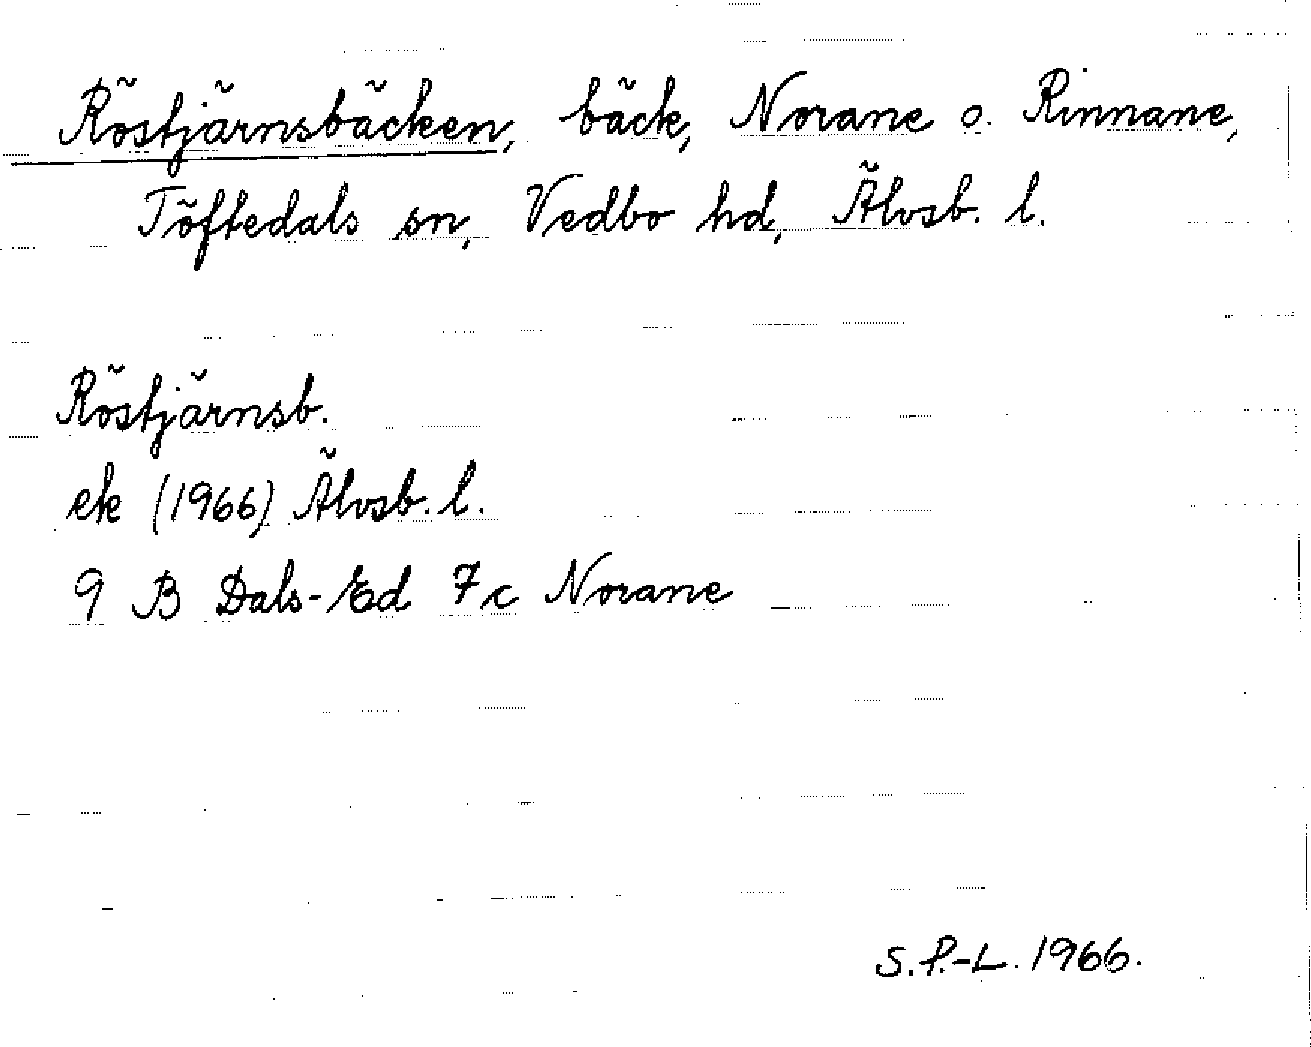 Röstjärnsbäcken, bäck, Norane o. Rinnane,
Töftedals sn, Vedbo hd, Älvsb. l.
Röstjärnsb.
ek (1966) Älvsb. l.
9 B Dals-Ed 7c Norane
S.P.-L. 1966.